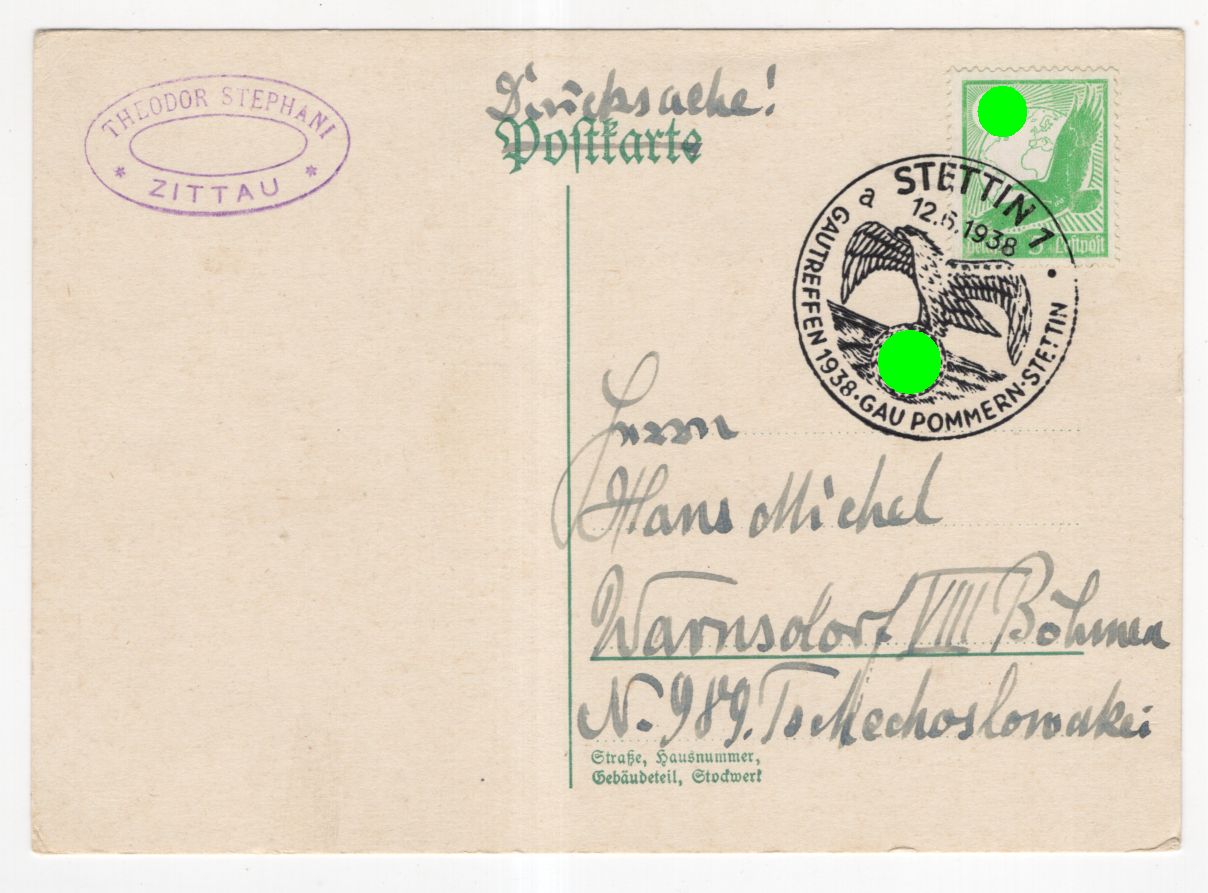 THEODOR STEPHANI
* ZITTAU *
Drucksache!
Postkarte
5 Luftpost
a STETTIN 7
12.6.1938
GAUTREFFEN 1938·GAU POMMERN·STETTIN
Herrn
Hans Michel
Warnsdorf VIII Böhmen
N. 989. Tschechoslowakei
Straße, Hausnummer,
Gebäudeteil, Stockwerk